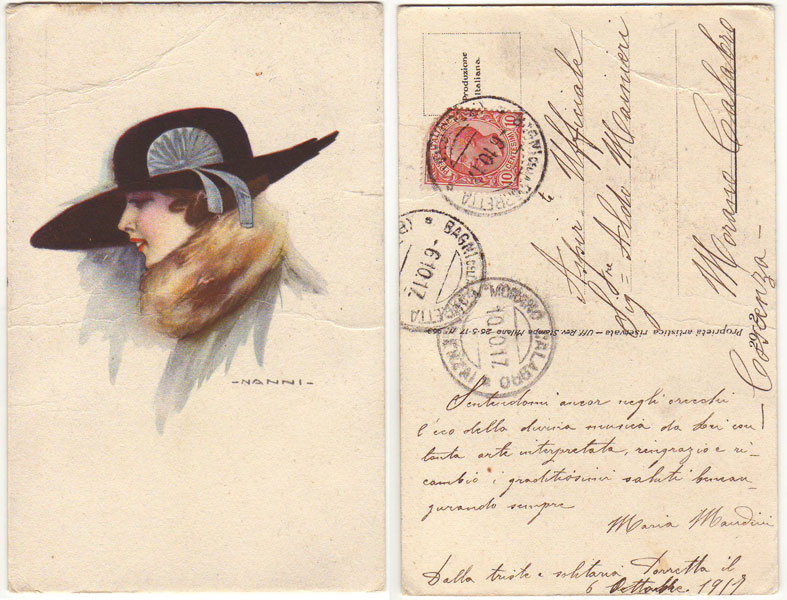 - NANNI -
Produzione
Italiana.
10
10
BAGNI DELLA PORRETTA
6·10·17
BAGNI DELLA PORRETTA
-6·10·17.
MORANO CALABRO
10.10.17.
Aspir. Ufficiale
Sig=re Aldo Mainieri
Morano Calabro
— Cosenza —
Proprietà artistica riservata — Uff. Rev. Stampa Milano - 26-5-17 N°
Sentendomi ancor negli orecchi
l'eco della divina musica da Loi con
tanta arte interpretata, ringrazio e ri-
cambio i graditissimi saluti beneau-
gurando sempre
Maria Mandini
Dalla triste e solitaria Porretta il
6 Ottobre 1917